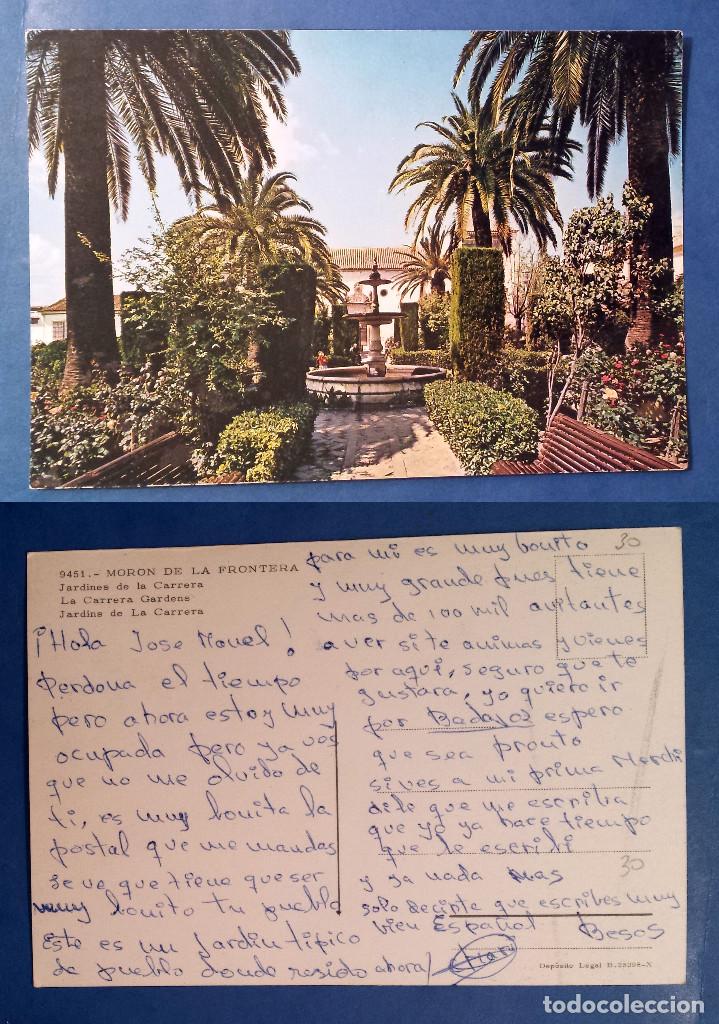 9451.- MORON DE LA FRONTERA
Jardines de la Carrera
La Carrera Gardens
Jardins de La Carrera
¡Hola Jose Monel!
Perdona el tiempo
pero ahora estoy muy
ocupada pero ya ves
que no me olvido de
ti, es muy bonita la
postal que me mandas
se ve que tiene que ser
muy bonito tu pueblo
Este es un jardin tipico
de pueblo donde resido ahora/
para mi es muy bonito
30
y muy grande pues tiene
mas de 100 mil avitantes
a ver si te animas y vienes
por aqui, seguro que te
gustara, yo quiero ir
por Badajoz espero
que sea pronto
si ves a mi prima Merchi
dile que me escriba
que yo ya hace tiempo
que le escribi
30
y ya nada mas
solo decirte que escribes muy
bien Español Besos
Depósito Legal B.
todocoleccion
todocoleccion.net